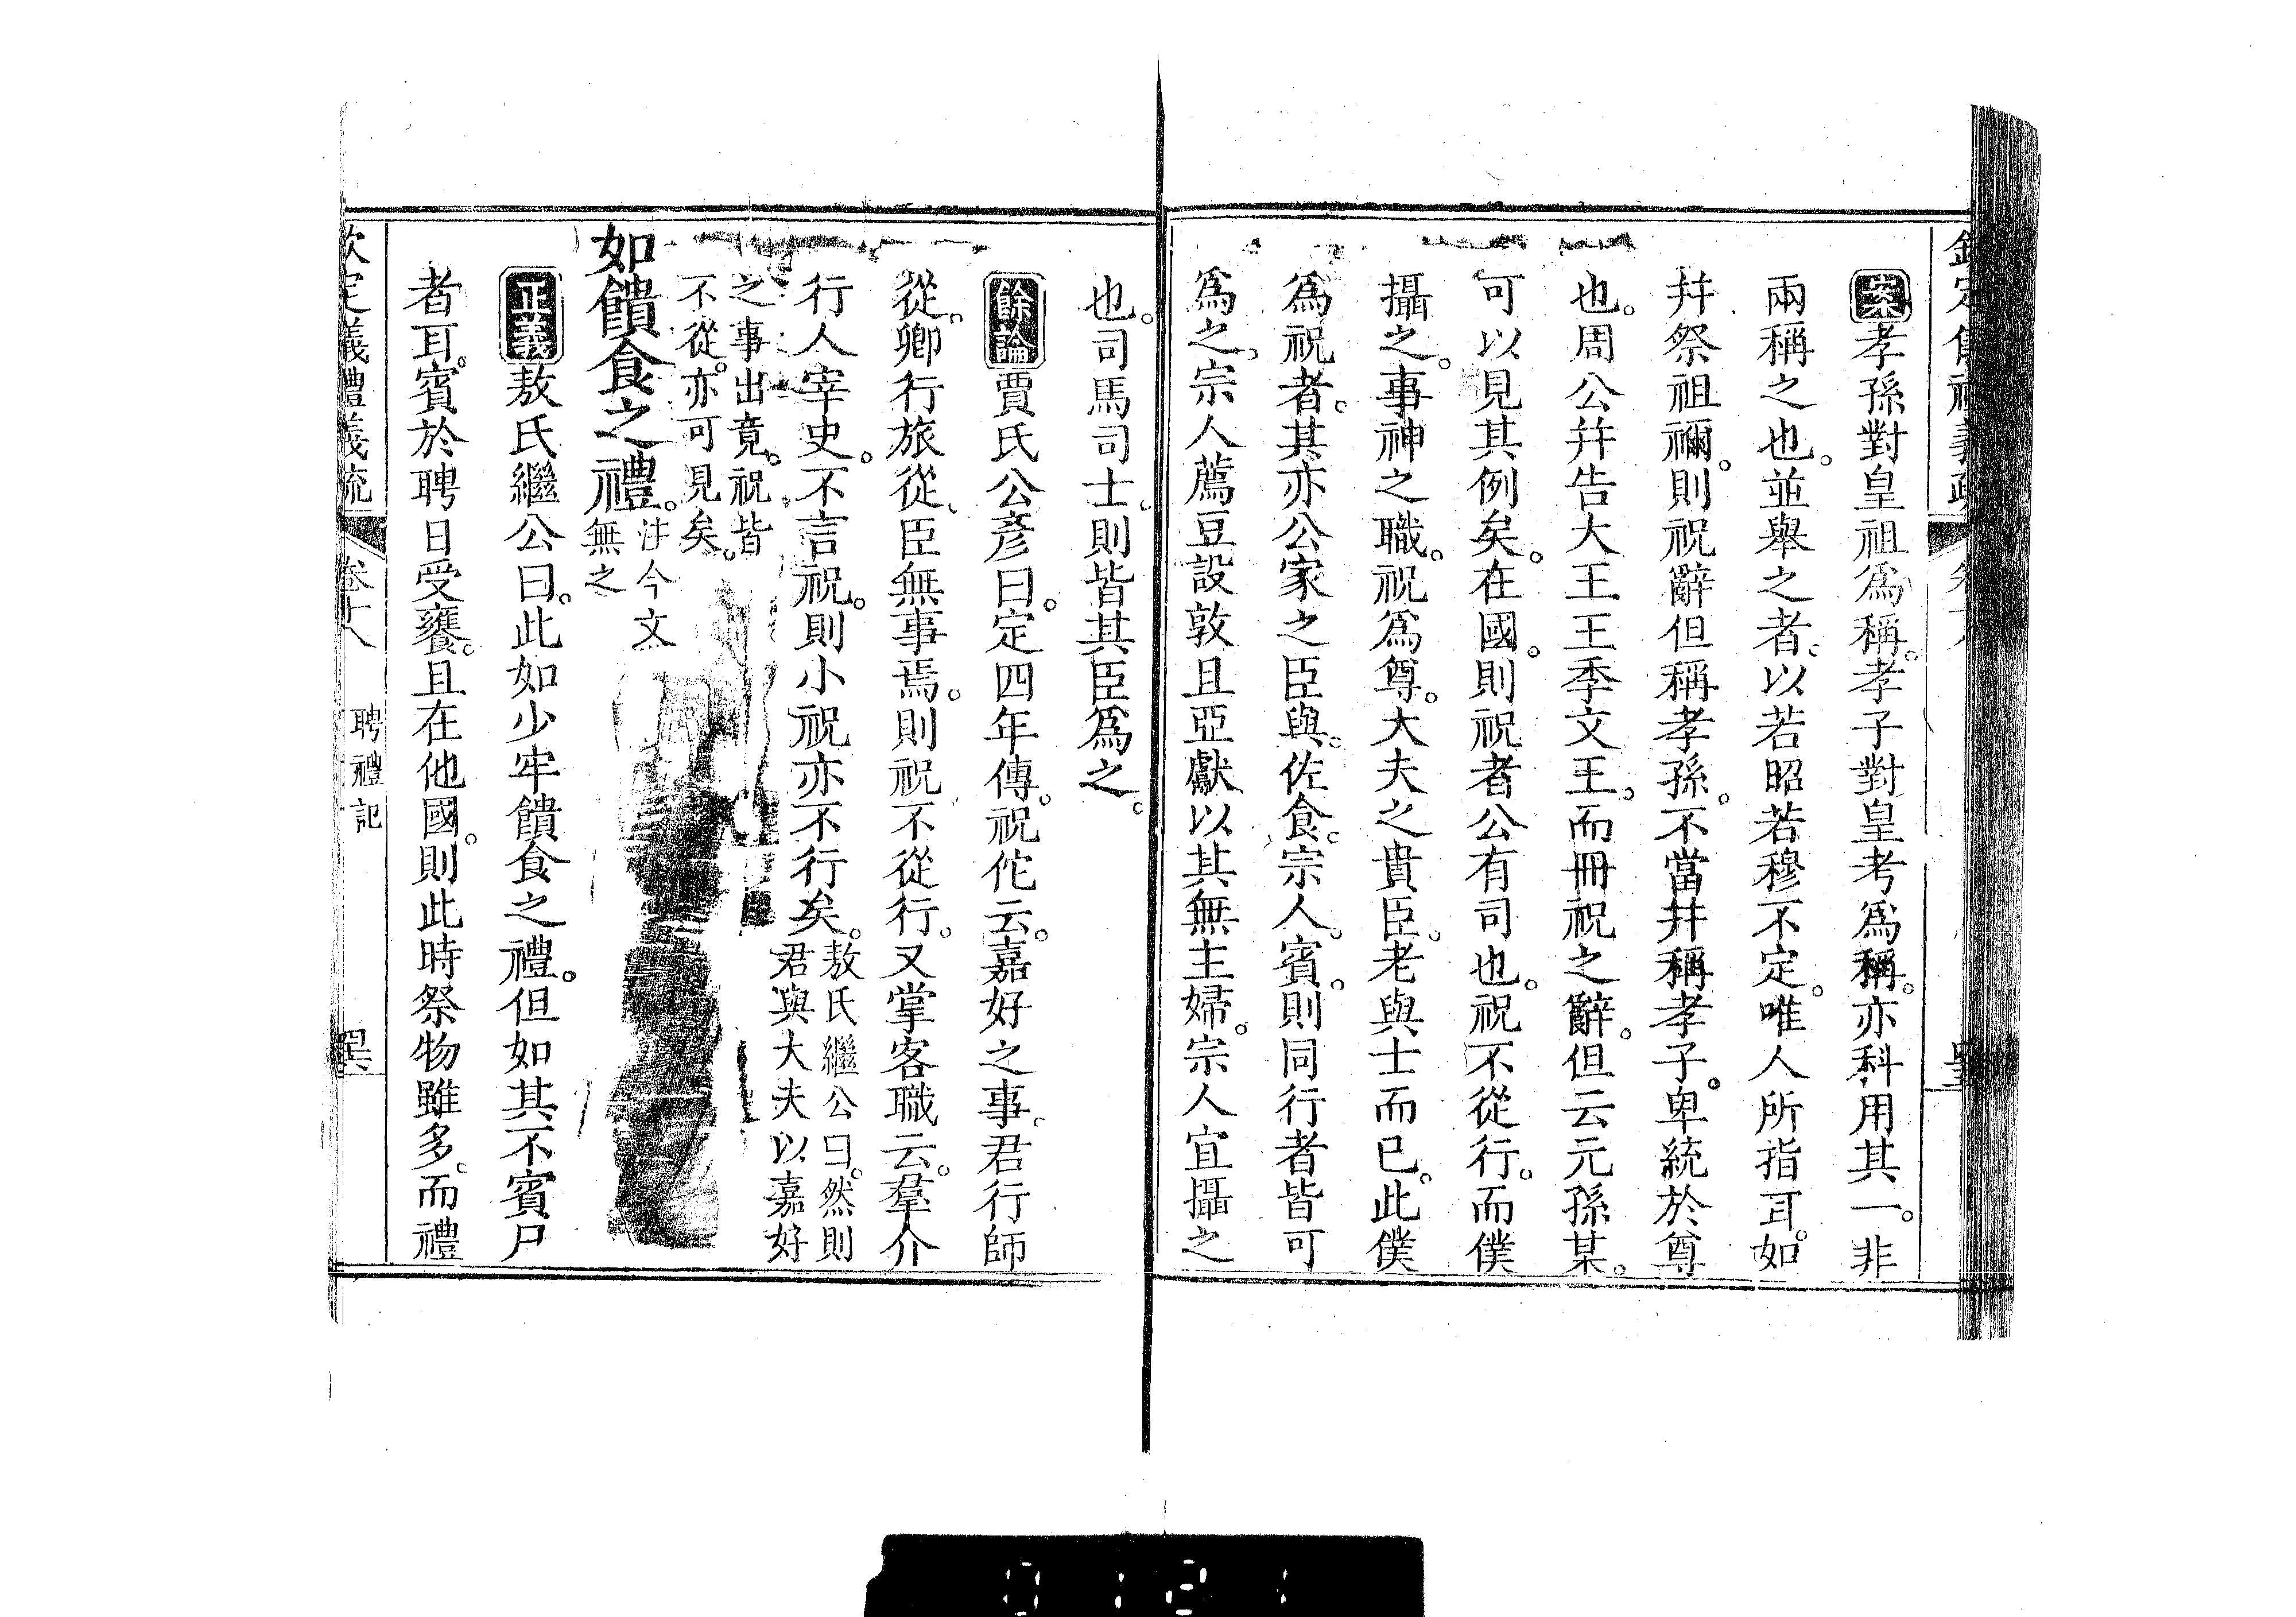 案孝孫對皇祖爲稱。孝子對皇考爲稱。亦科用其一。非
兩稱之也。並舉之者。以若昭若穆不定。唯人所指耳。如
幷祭祖禰。則祝辭但稱孝孫。不當幷稱孝子。卑統於尊
也。周公幷告大王王季文王。而冊祝之辭。但云元孫某。
可以見其例矣。在國。則祝者公有司也。祝不從行。而僕
攝之。事神之職。祝爲尊。大夫之貴臣。老與士而已。此僕
爲祝者。其亦公家之臣與。佐食。宗人。賓。則同行者皆可
爲之。宗人薦豆設敦且亞獻以其無主婦。宗人宜攝之
也。司馬司士。則皆其臣爲之。
餘論賈氏公彥曰。定四年傳。祝佗云。嘉好之事。君行師
從。卿行旅從。臣無事焉。則祝不從行。又掌客職云。羣介
行人宰史。不言祝。則小祝亦不行矣。敖氏繼公曰。然則
君與大夫以嘉好
之事出竟。祝皆
不從。亦可見矣。
如饋食之禮。注今文
無之
正義敖氏繼公曰。此如少牢饋食之禮。但如其不賓尸
者耳。賓於聘日受饔。且在他國。則此時祭物雖多。而禮
欽定儀禮義疏 卷十八 聘禮記
0121